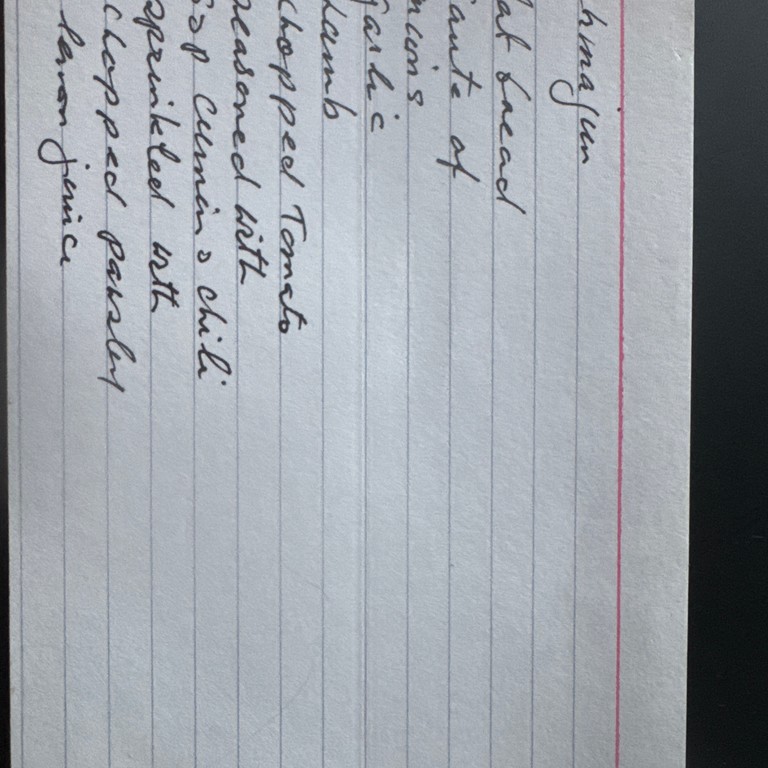 hmajun
at bread
aute of
nions
Garlic
Lamb
chopped Tomato
seasoned with
S & P cumin & chili
sprinkled with
chopped parsley
lemon juice